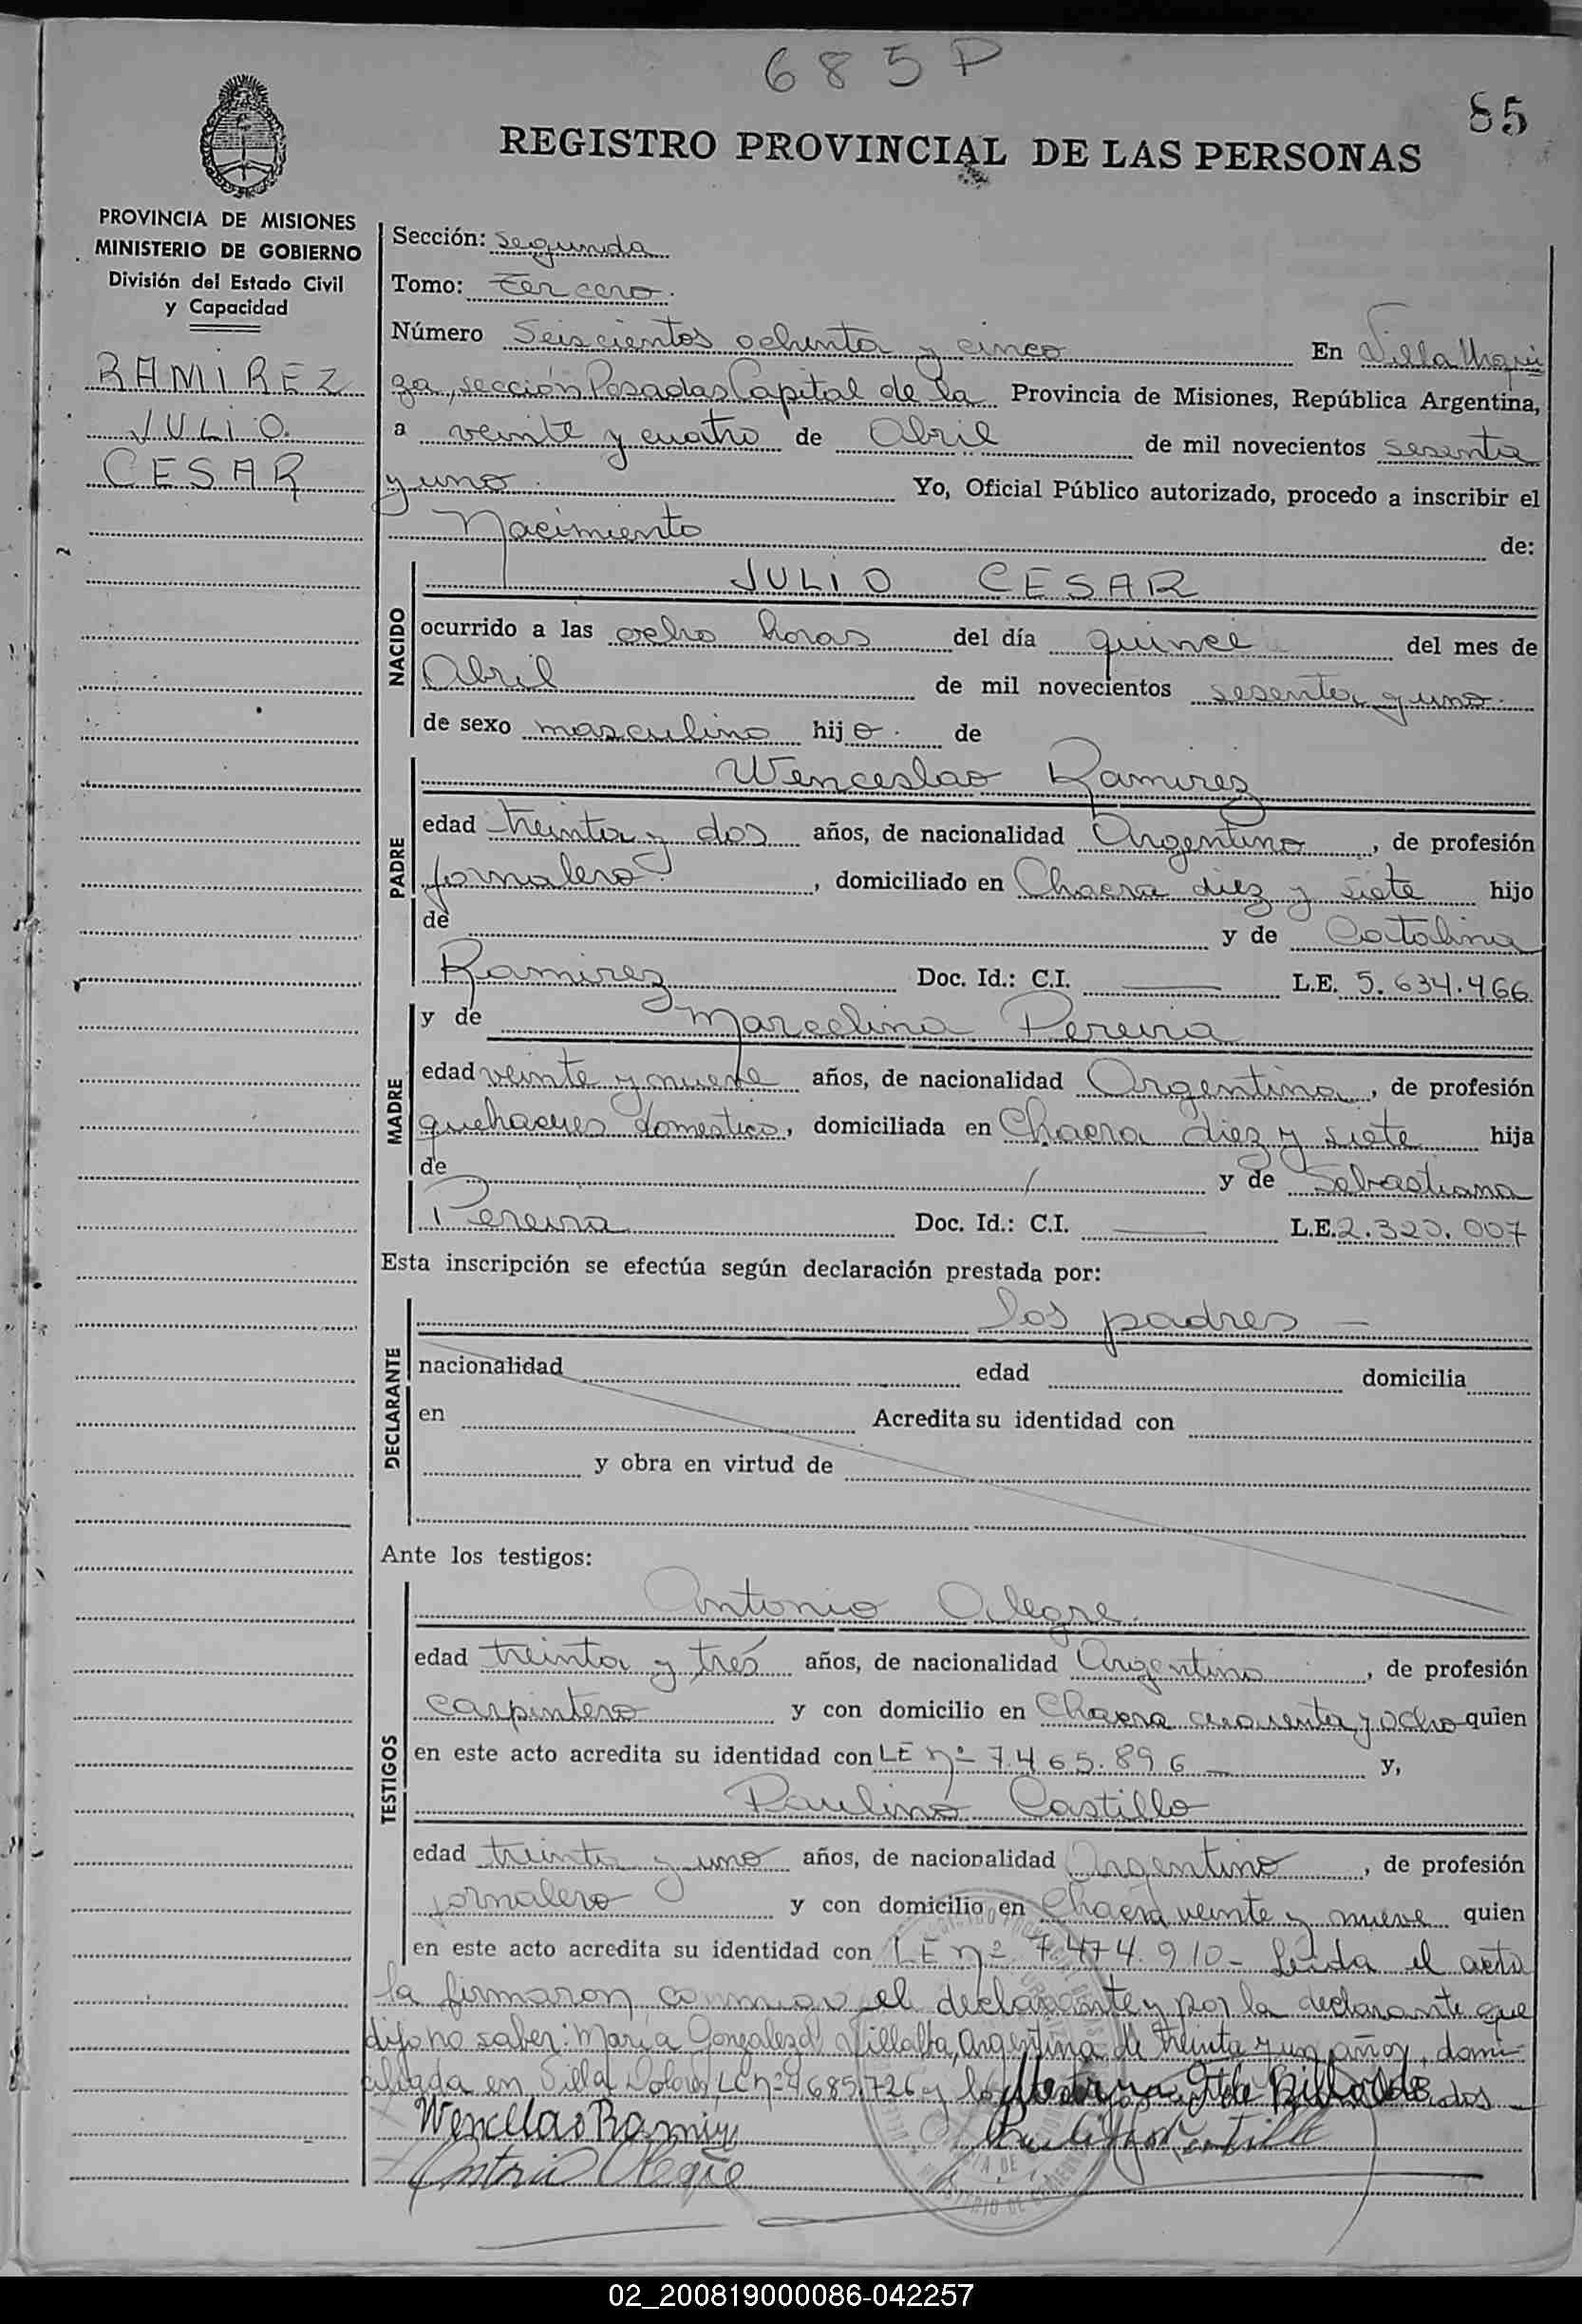 685 P
85
REGISTRO PROVINCIAL DE LAS PERSONAS
PROVINCIA DE MISIONES
MINISTERIO DE GOBIERNO
División del Estado Civil
y Capacidad
RAMIREZ
JULIO
CESAR
Sección: Segunda
Tomo: Tercero.
Número Seiscientos ochenta y cinco En Villa Urqui
za, sección Posadas Capital de la Provincia de Misiones, República Argentina,
a veinte y cuatro de Abril de mil novecientos sesenta
y uno. Yo, Oficial Público autorizado, procedo a inscribir el
Nacimiento de:
NACIDO
JULIO CESAR
ocurrido a las ocho horas del día quince del mes de
Abril de mil novecientos sesenta y uno.
de sexo masculino hijo. de
PADRE
Wenceslao Ramirez
edad treinta y dos años, de nacionalidad Argentino, de profesión
jornalero, domiciliado en Chacra diez y siete hijo
de y de Catalina
Ramirez Doc. Id.: C.I. — L.E. 5.634.466
MADRE
y de Marcelina Pereira
edad veinte y nueve años, de nacionalidad Argentina, de profesión
quehaceres domestico, domiciliada en Chacra diez y siete hija
de y de Sebastiana
Pereira Doc. Id.: C.I. — L.E. 2.320.007
Esta inscripción se efectúa según declaración prestada por:
DECLARANTE
los padres —
nacionalidad edad domicilia
en Acredita su identidad con
y obra en virtud de
Ante los testigos:
TESTIGOS
Antonio Alegre.
edad treinta y tres años, de nacionalidad Argentino, de profesión
carpintero y con domicilio en Chacra cincuenta y ocho quien
en este acto acredita su identidad con LE nº 7.465.896 — y,
Paulino Castillo
edad treinta y uno años, de nacionalidad Argentino, de profesión
jornalero y con domicilio en Chacra veinte y nueve quien
en este acto acredita su identidad con LE nº 7.474.910 - Leida el acta
la firmaron conmigo el declarante y por la declarante que
dijo no saber: Maria Gonzalez d Villalba, Argentina de treinta y un años, domi
ciliada en Villa Dolores, LC nº 4685.726 y los
Wencelao Ramirez
Antonio Alegre
02_200819000086-042257